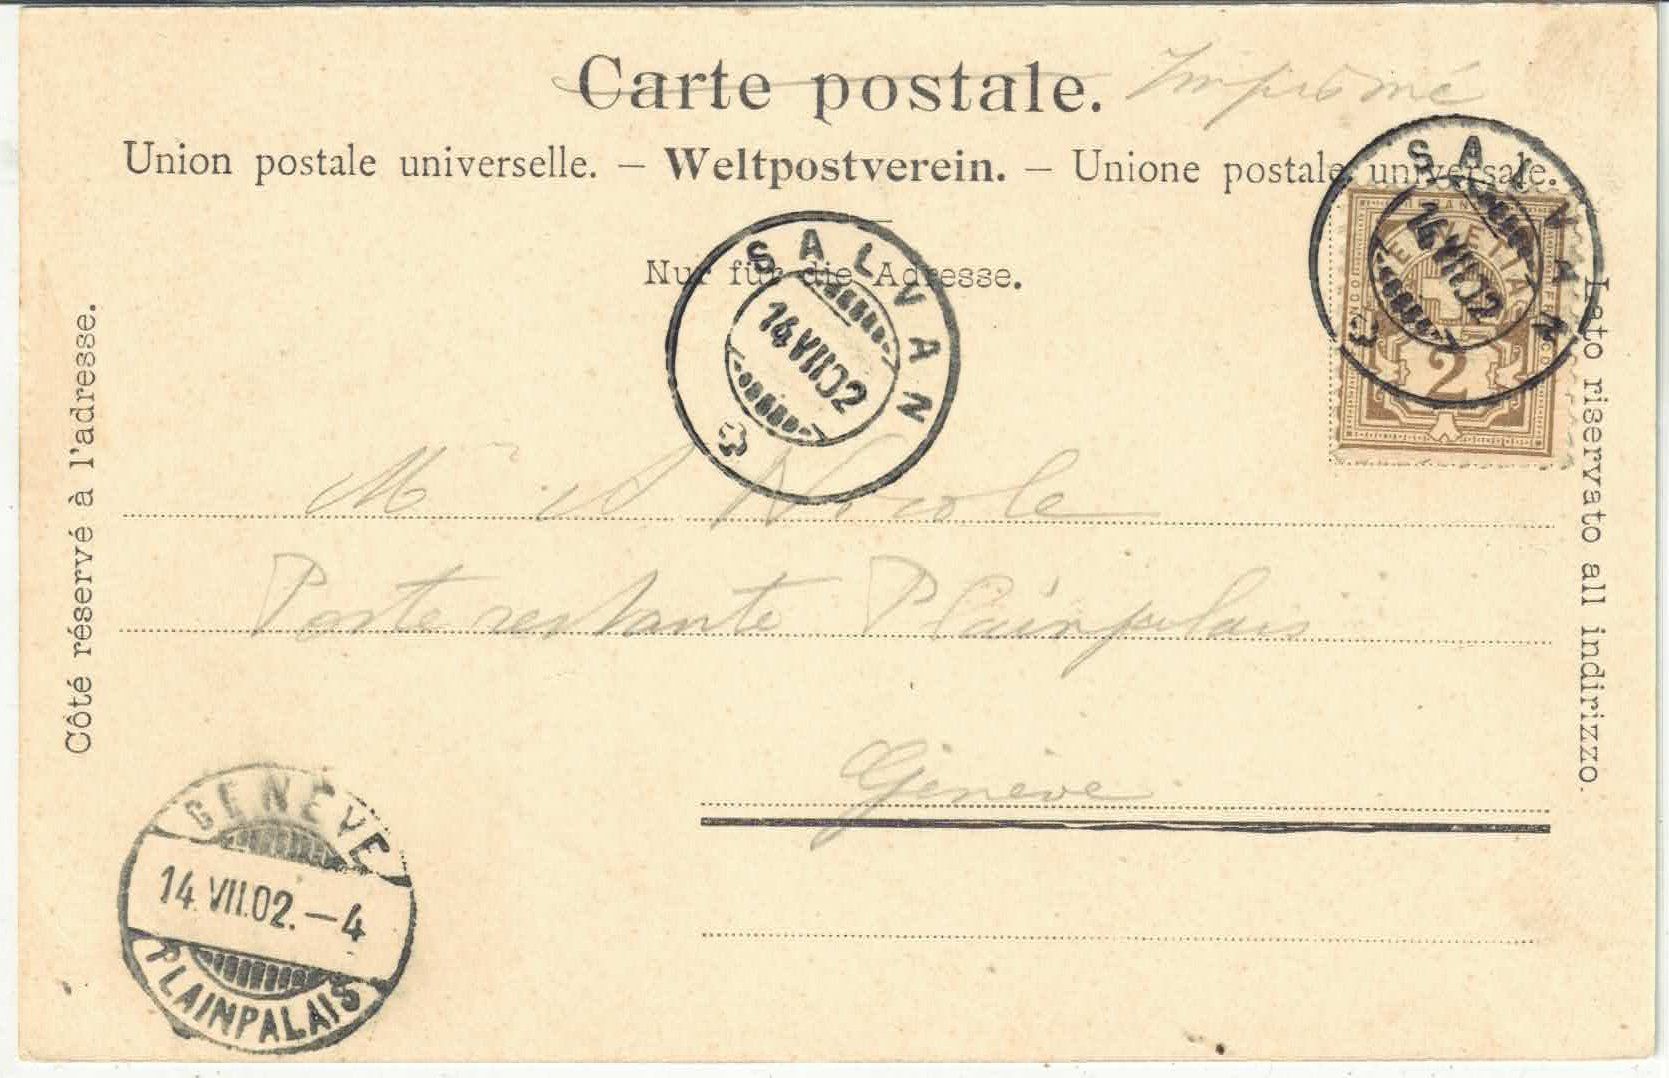 Carte postale. Imprimé
Union postale universelle. — Weltpostverein. — Unione postale universale.
Nur für die Adresse.
Côté réservé à l'adresse.
Lato riservato all indirizzo.
SALVAN
14 VII 02
SALVAN
14 VII 02
HELVETIA
FRANCO
2
M A Nicole
Poste restante Plainpalais
Genève
GENÈVE
14.VII.02.—4
PLAINPALAIS